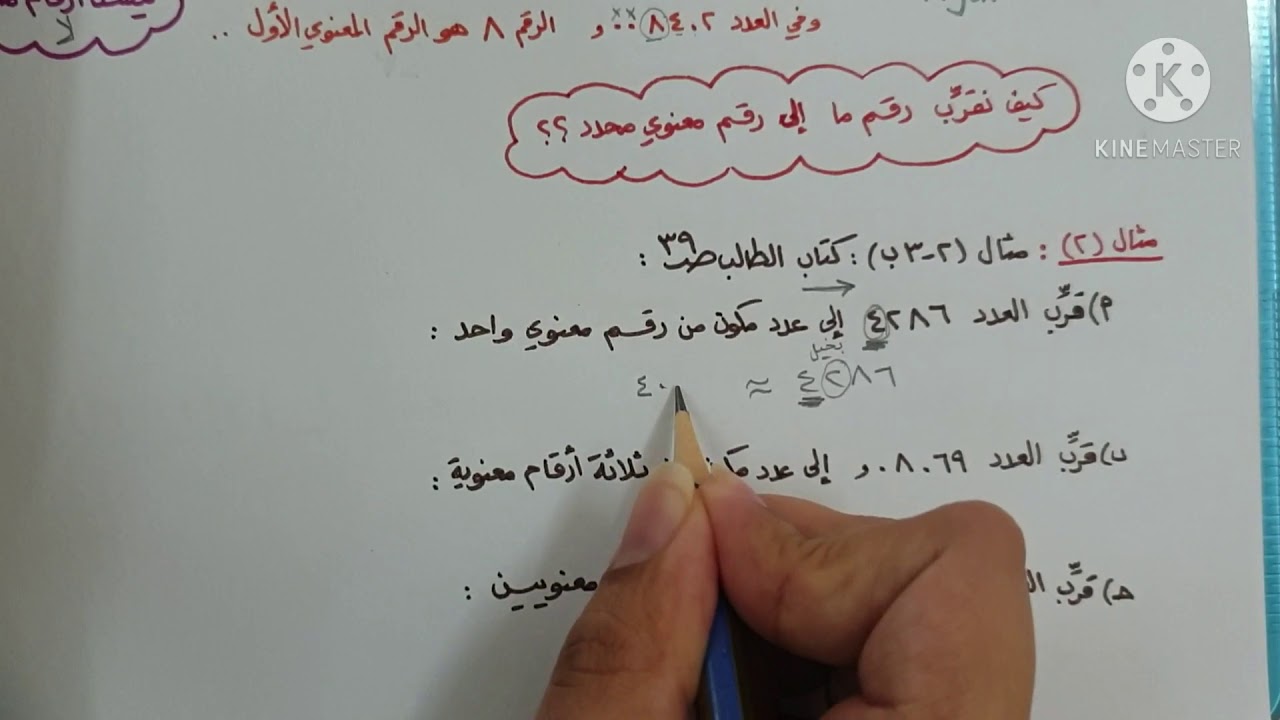 وفي العدد ٨٤٠٢ ٠٠ و الرقم ٨ هو الرقم المعنوي الأول ..
K
KINEMASTER
كيف نقرِّب رقم ما إلى رقم معنوي محدد ؟؟
مثال (٢) : مثال (٢-٣ب) : كتاب الطالب ص٣٩ :
م) قرِّب العدد ٤٢٨٦ إلى عدد مكون من رقم معنوي واحد :
بخيل
٤٢٨٦ ≈ ٤٠
د) قرِّب العدد ٠٨٠٦٩ و إلى عدد ثلاثة أرقام معنوية :
هـ) قرِّب معنويين :